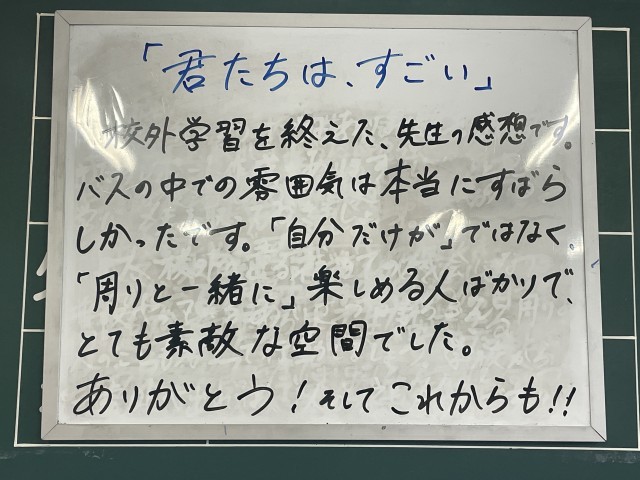 「君たちは、すごい」
校外学習を終えた、先生の感想です。
バスの中での雰囲気は本当にすばら
しかったです。「自分だけが」ではなく、
「周りと一緒に」楽しめる人ばかりで、
とても素敵な空間でした。
ありがとう！そしてこれからも!!